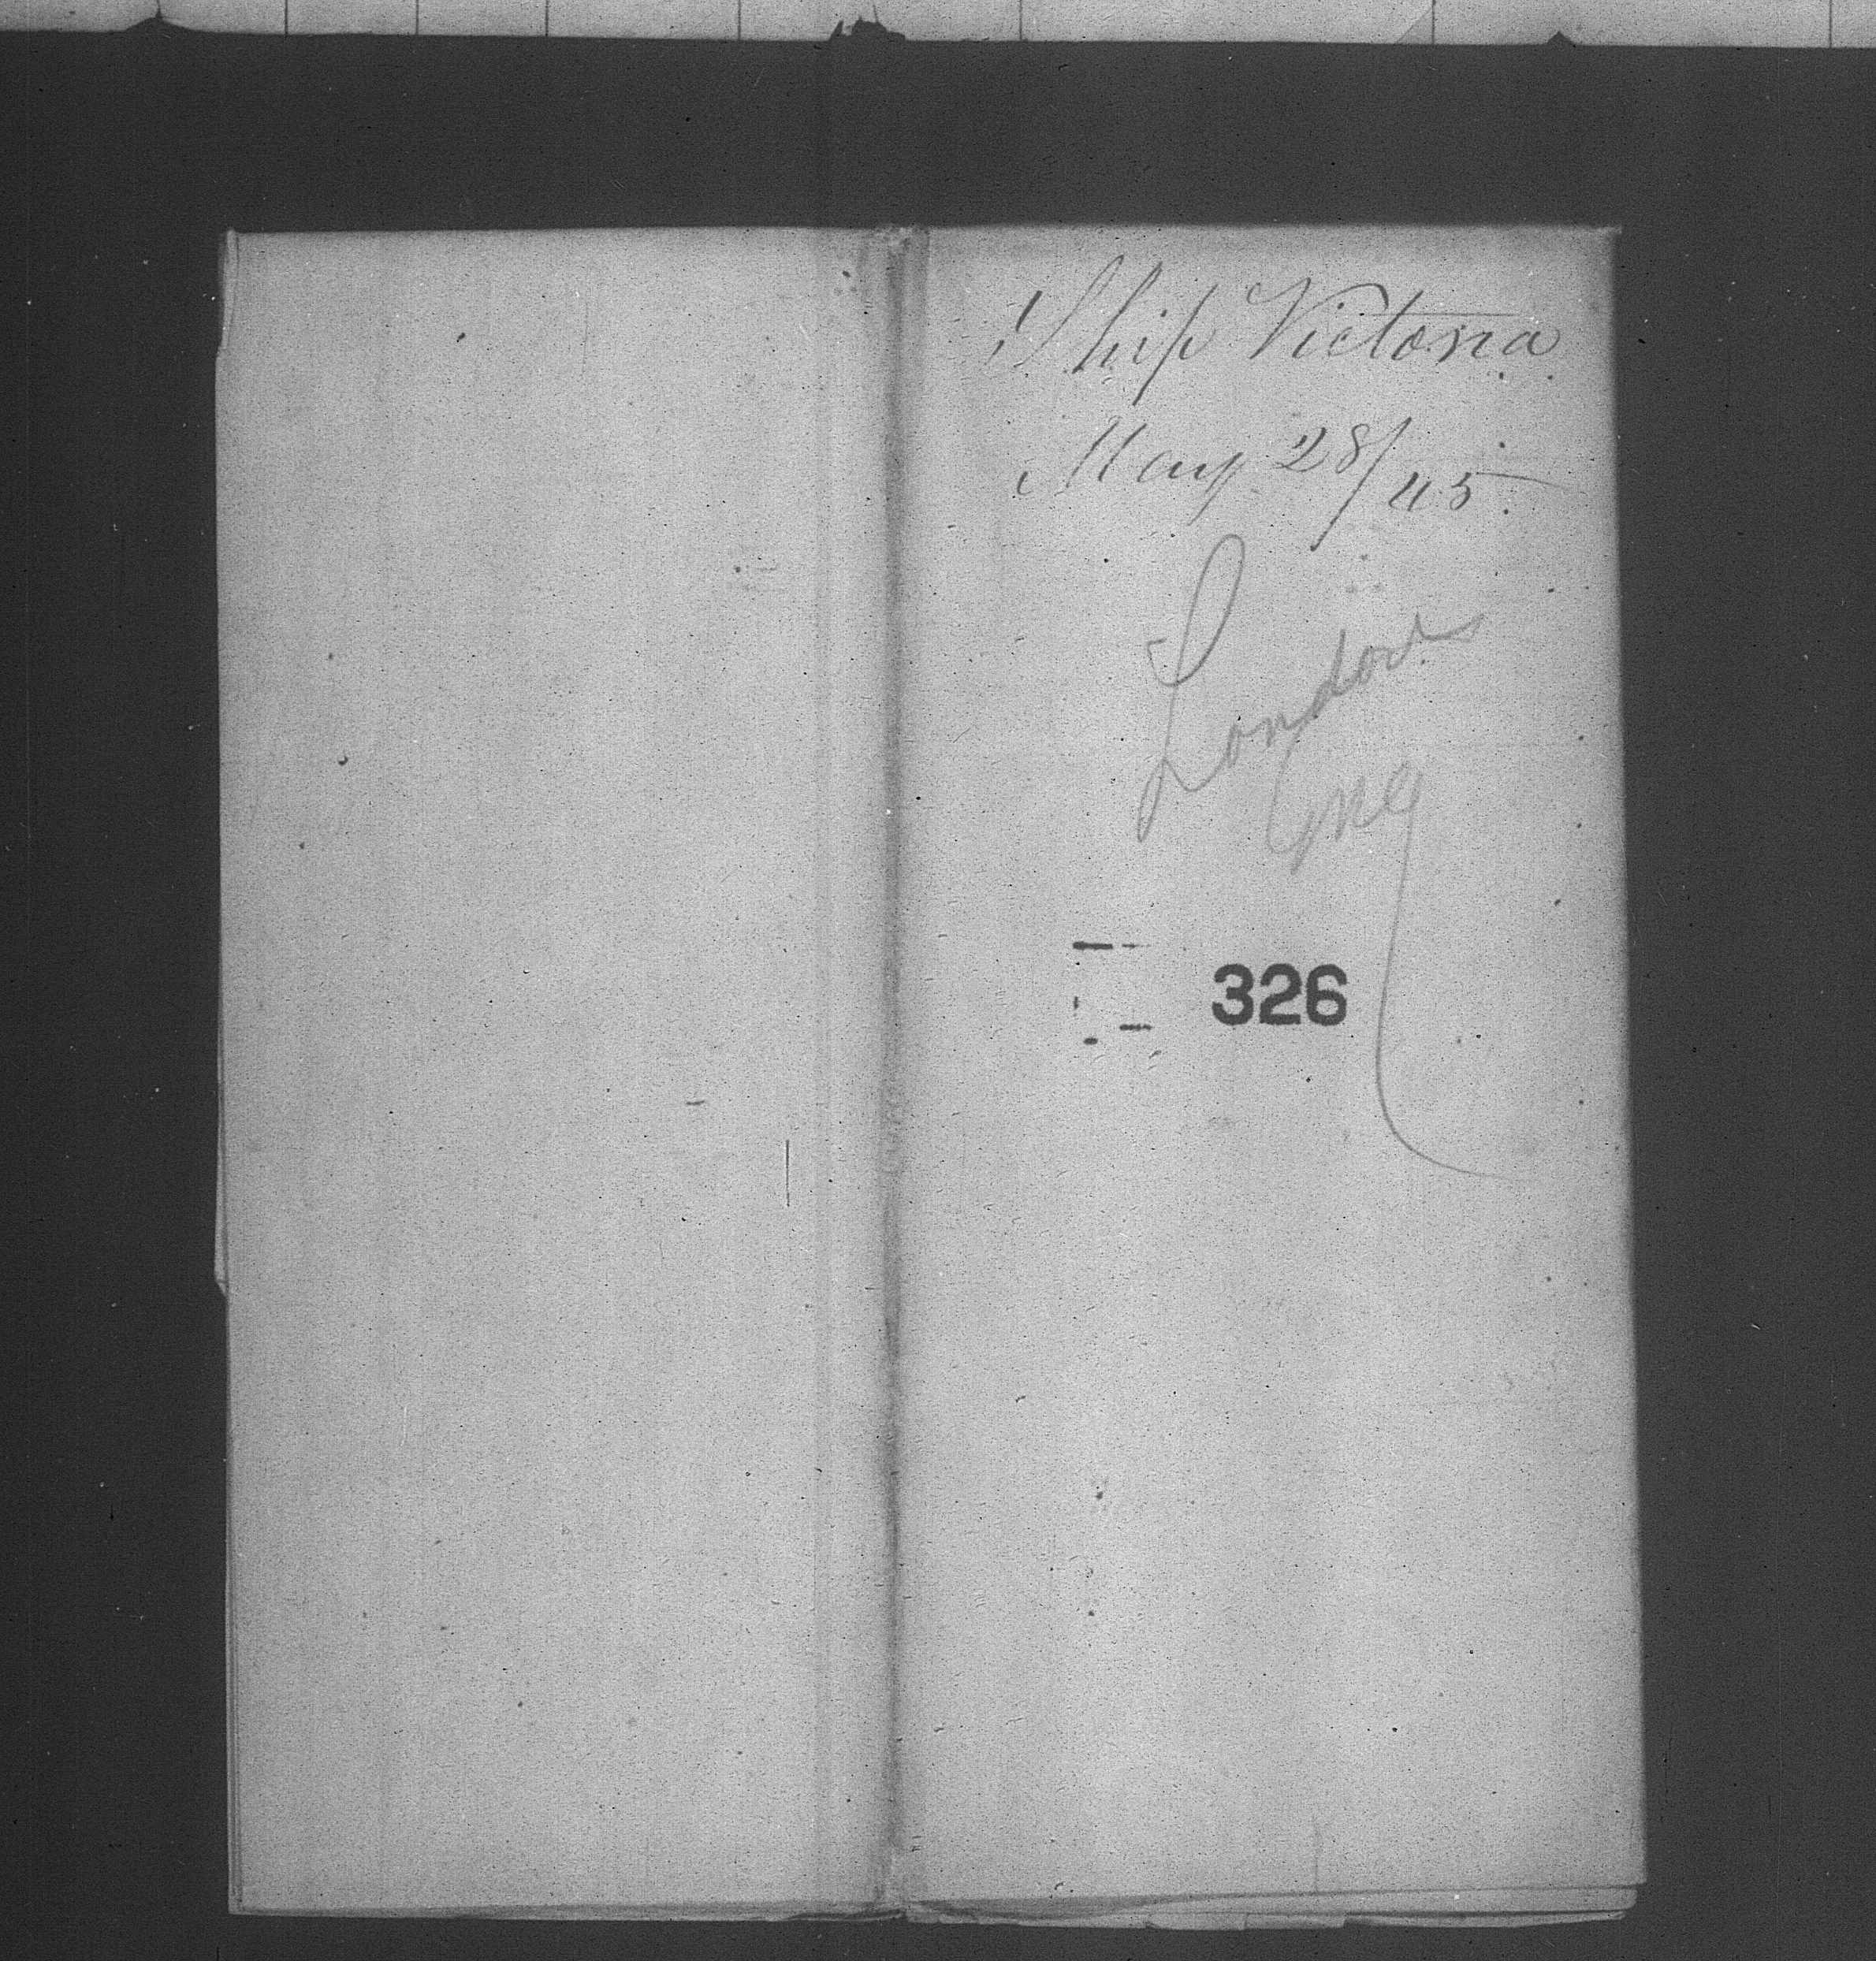 Ship Victoria
May 28/45.
London
Eng
326